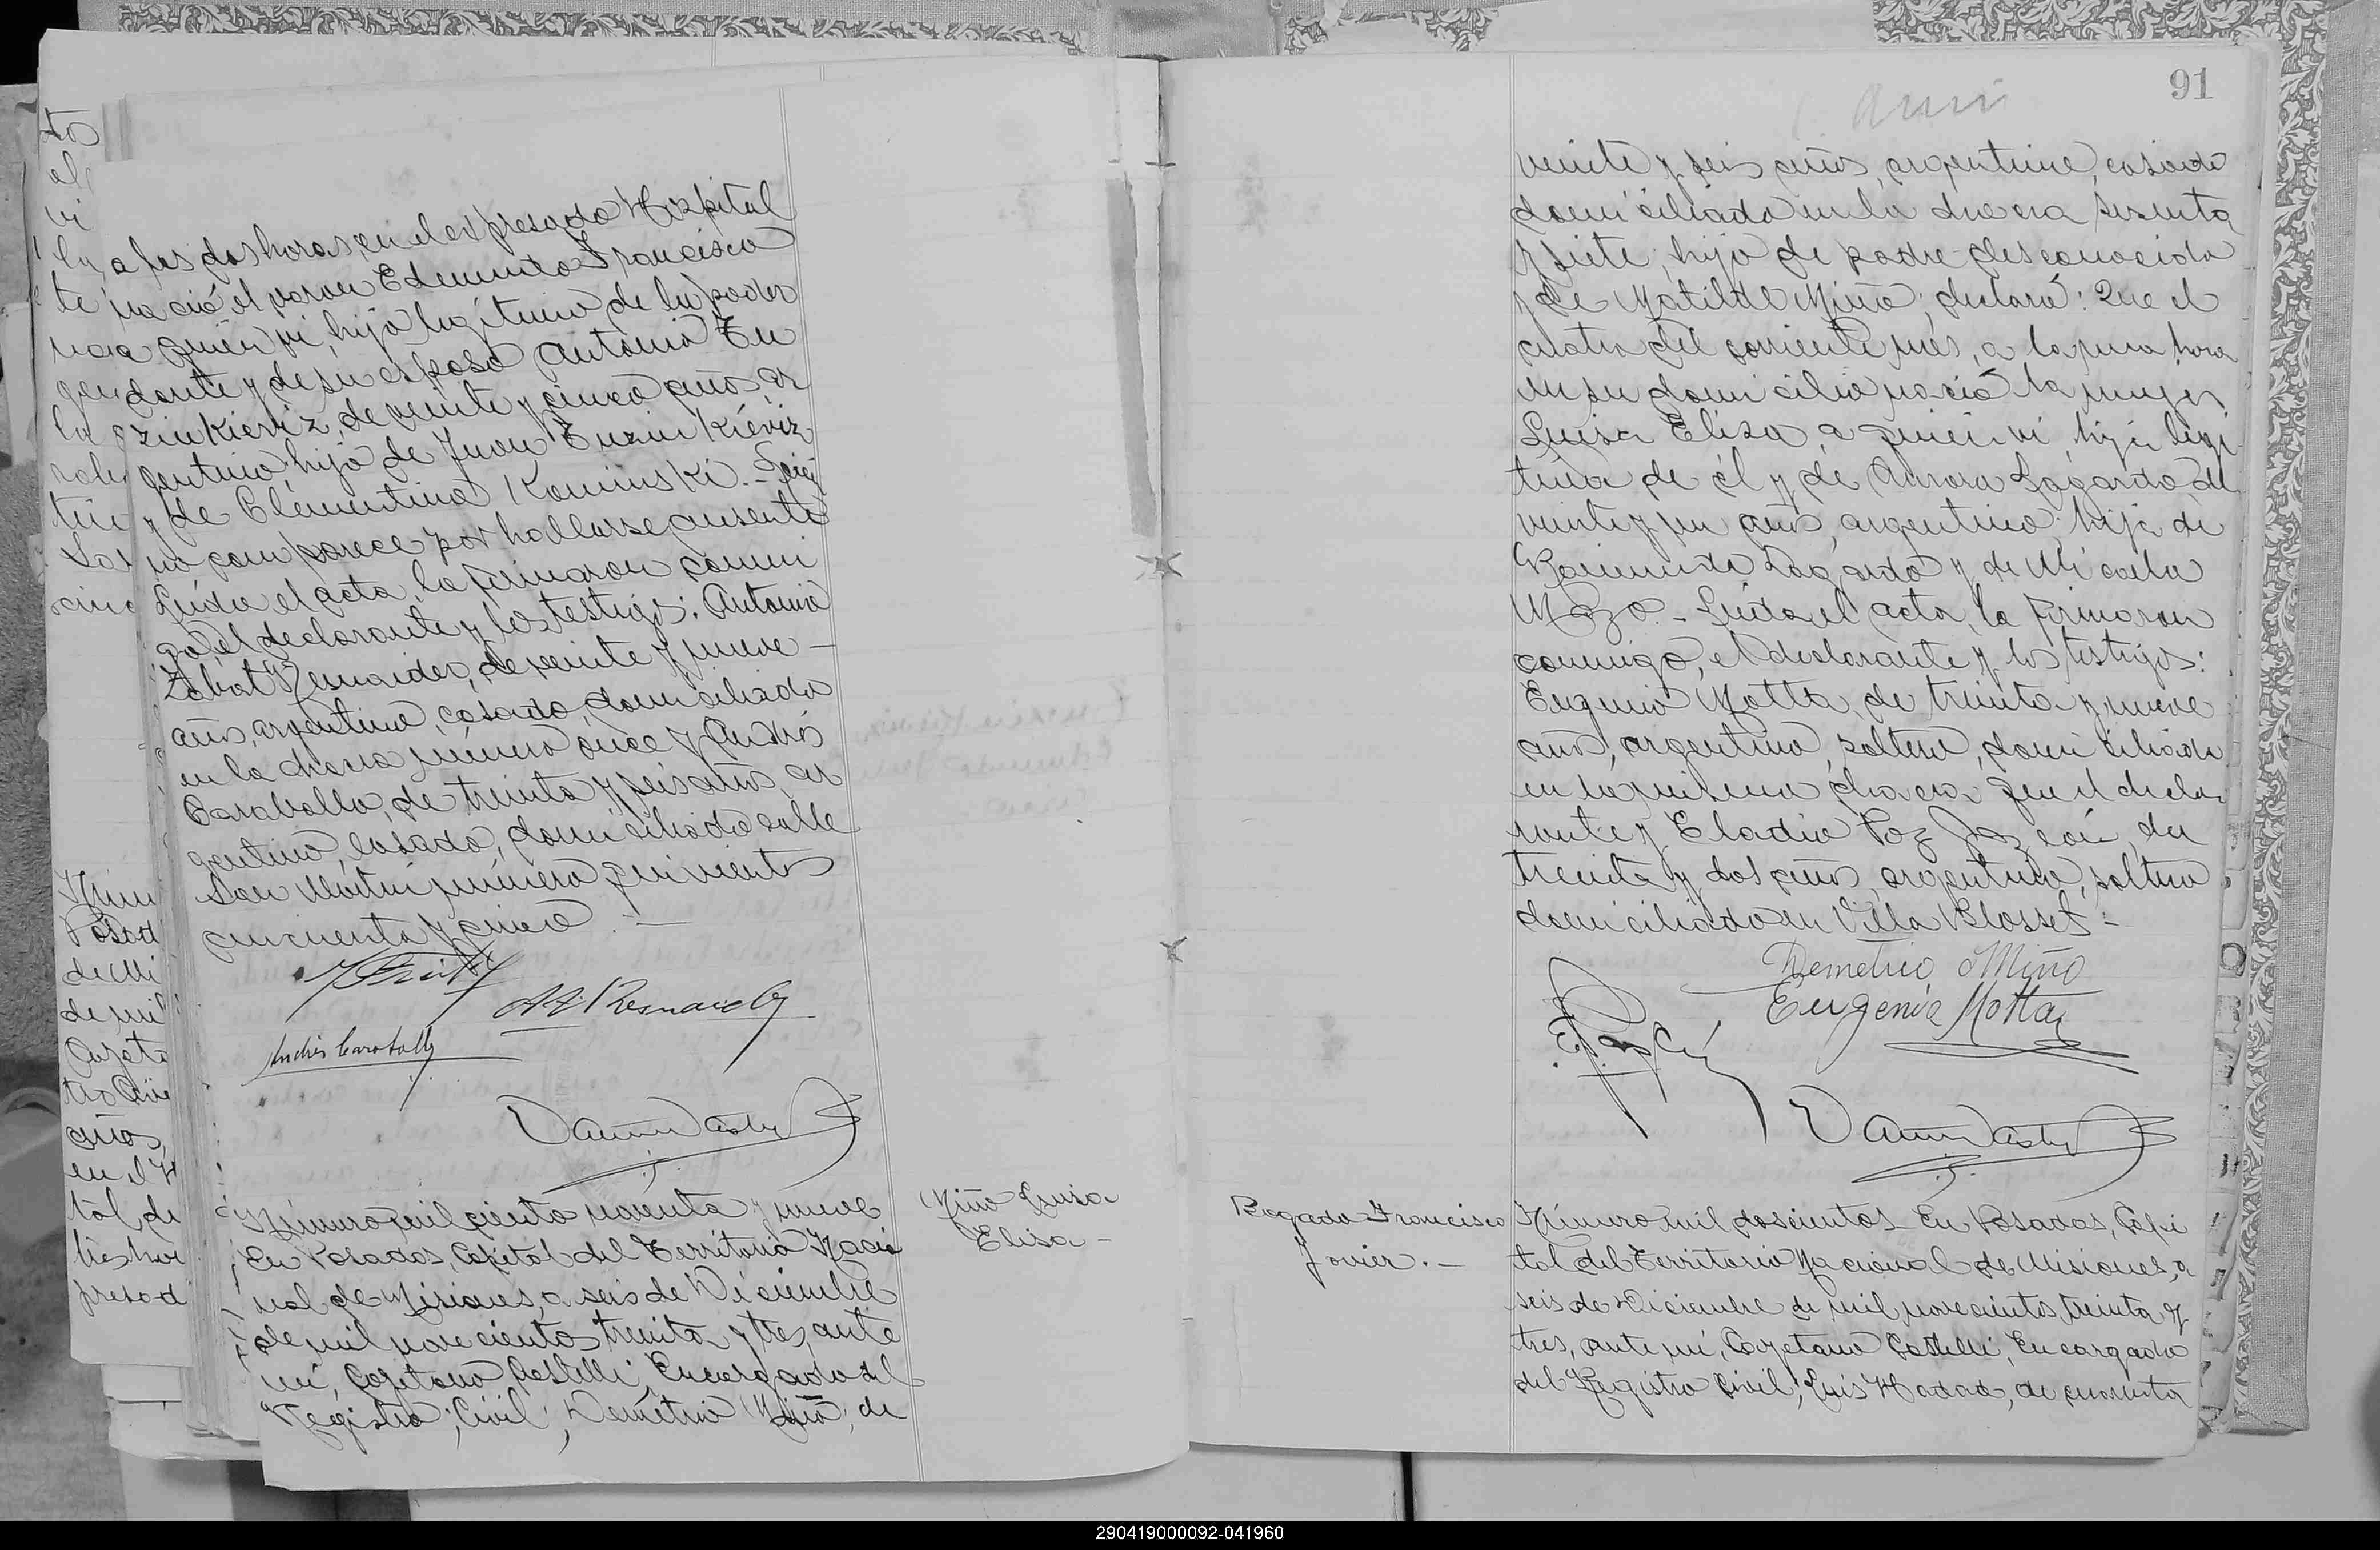 a las dos horas, en el expresado Hospital
nació el varon Edemundo Francisco
a quien vi, hijo legítimo de la poder
dante y de su esposo Antonio Eu
zinkieviz, de veinte y cinco años, ar
gentino, hijo de Juan Euzinkieviz
y de Clementina Kominski.- Quien
no comparece por hallarse ausente
Leída el acta, la firmaron conmi
go, el declarante y los testigos: Antonio
Resnaider, de veinte y nueve -
años, argentino, casado, domiciliado
en la chacra número once y Andrés
Caraballo, de treinta y seis años, ar
gentino, casado, domiciliado calle
San Martín número quinientos
cincuenta y cinco. -
Andrés Caraballo
Número mil ciento noventa y nueve
En Posadas, Capital del Territorio Nacio
nal de Misiones, a seis de Diciembre
de mil novecientos treinta y tres, ante
mí, Cayetano Castelli, Encargado del
Registro Civil, Demetrio Miño, de
Miño Luisa
Elisa -
91
veinte y seis años, argentino, casado
domiciliado en la chacra sesenta
y siete, hijo de padre desconocido
y de Matilde Miño, declaró: Que el
cuatro del corriente mes, a la una hora
en su domicilio nació la mujer
Luisa Elisa a quien vi, hija legí
tima de él y de Aurora Logardo, de
veinte y un años, argentina, hija de
Raimundo Logardo y de Micaela
Mozo.- Leída el acta, la firmaron
conmigo, el declarante y los testigos:
Eugenio Motta, de treinta y nueve
años, argentino, soltero, domiciliado
en la misma chacra que el decla
rante y Eladio Paz, de
treinta y dos años, argentino, soltero
domiciliado en Villa Blosset -
Demetrio Miño
Eugenio Motta
Bogado Francisco
Javier. -
Número mil doscientos En Posadas, Capi
tal del Territorio Nacional de Misiones, a
seis de Diciembre de mil novecientos treinta y
tres, ante mí, Cayetano Castelli, Encargado
del Registro Civil, Luis Hadad, de cuarenta
290419000092-041960